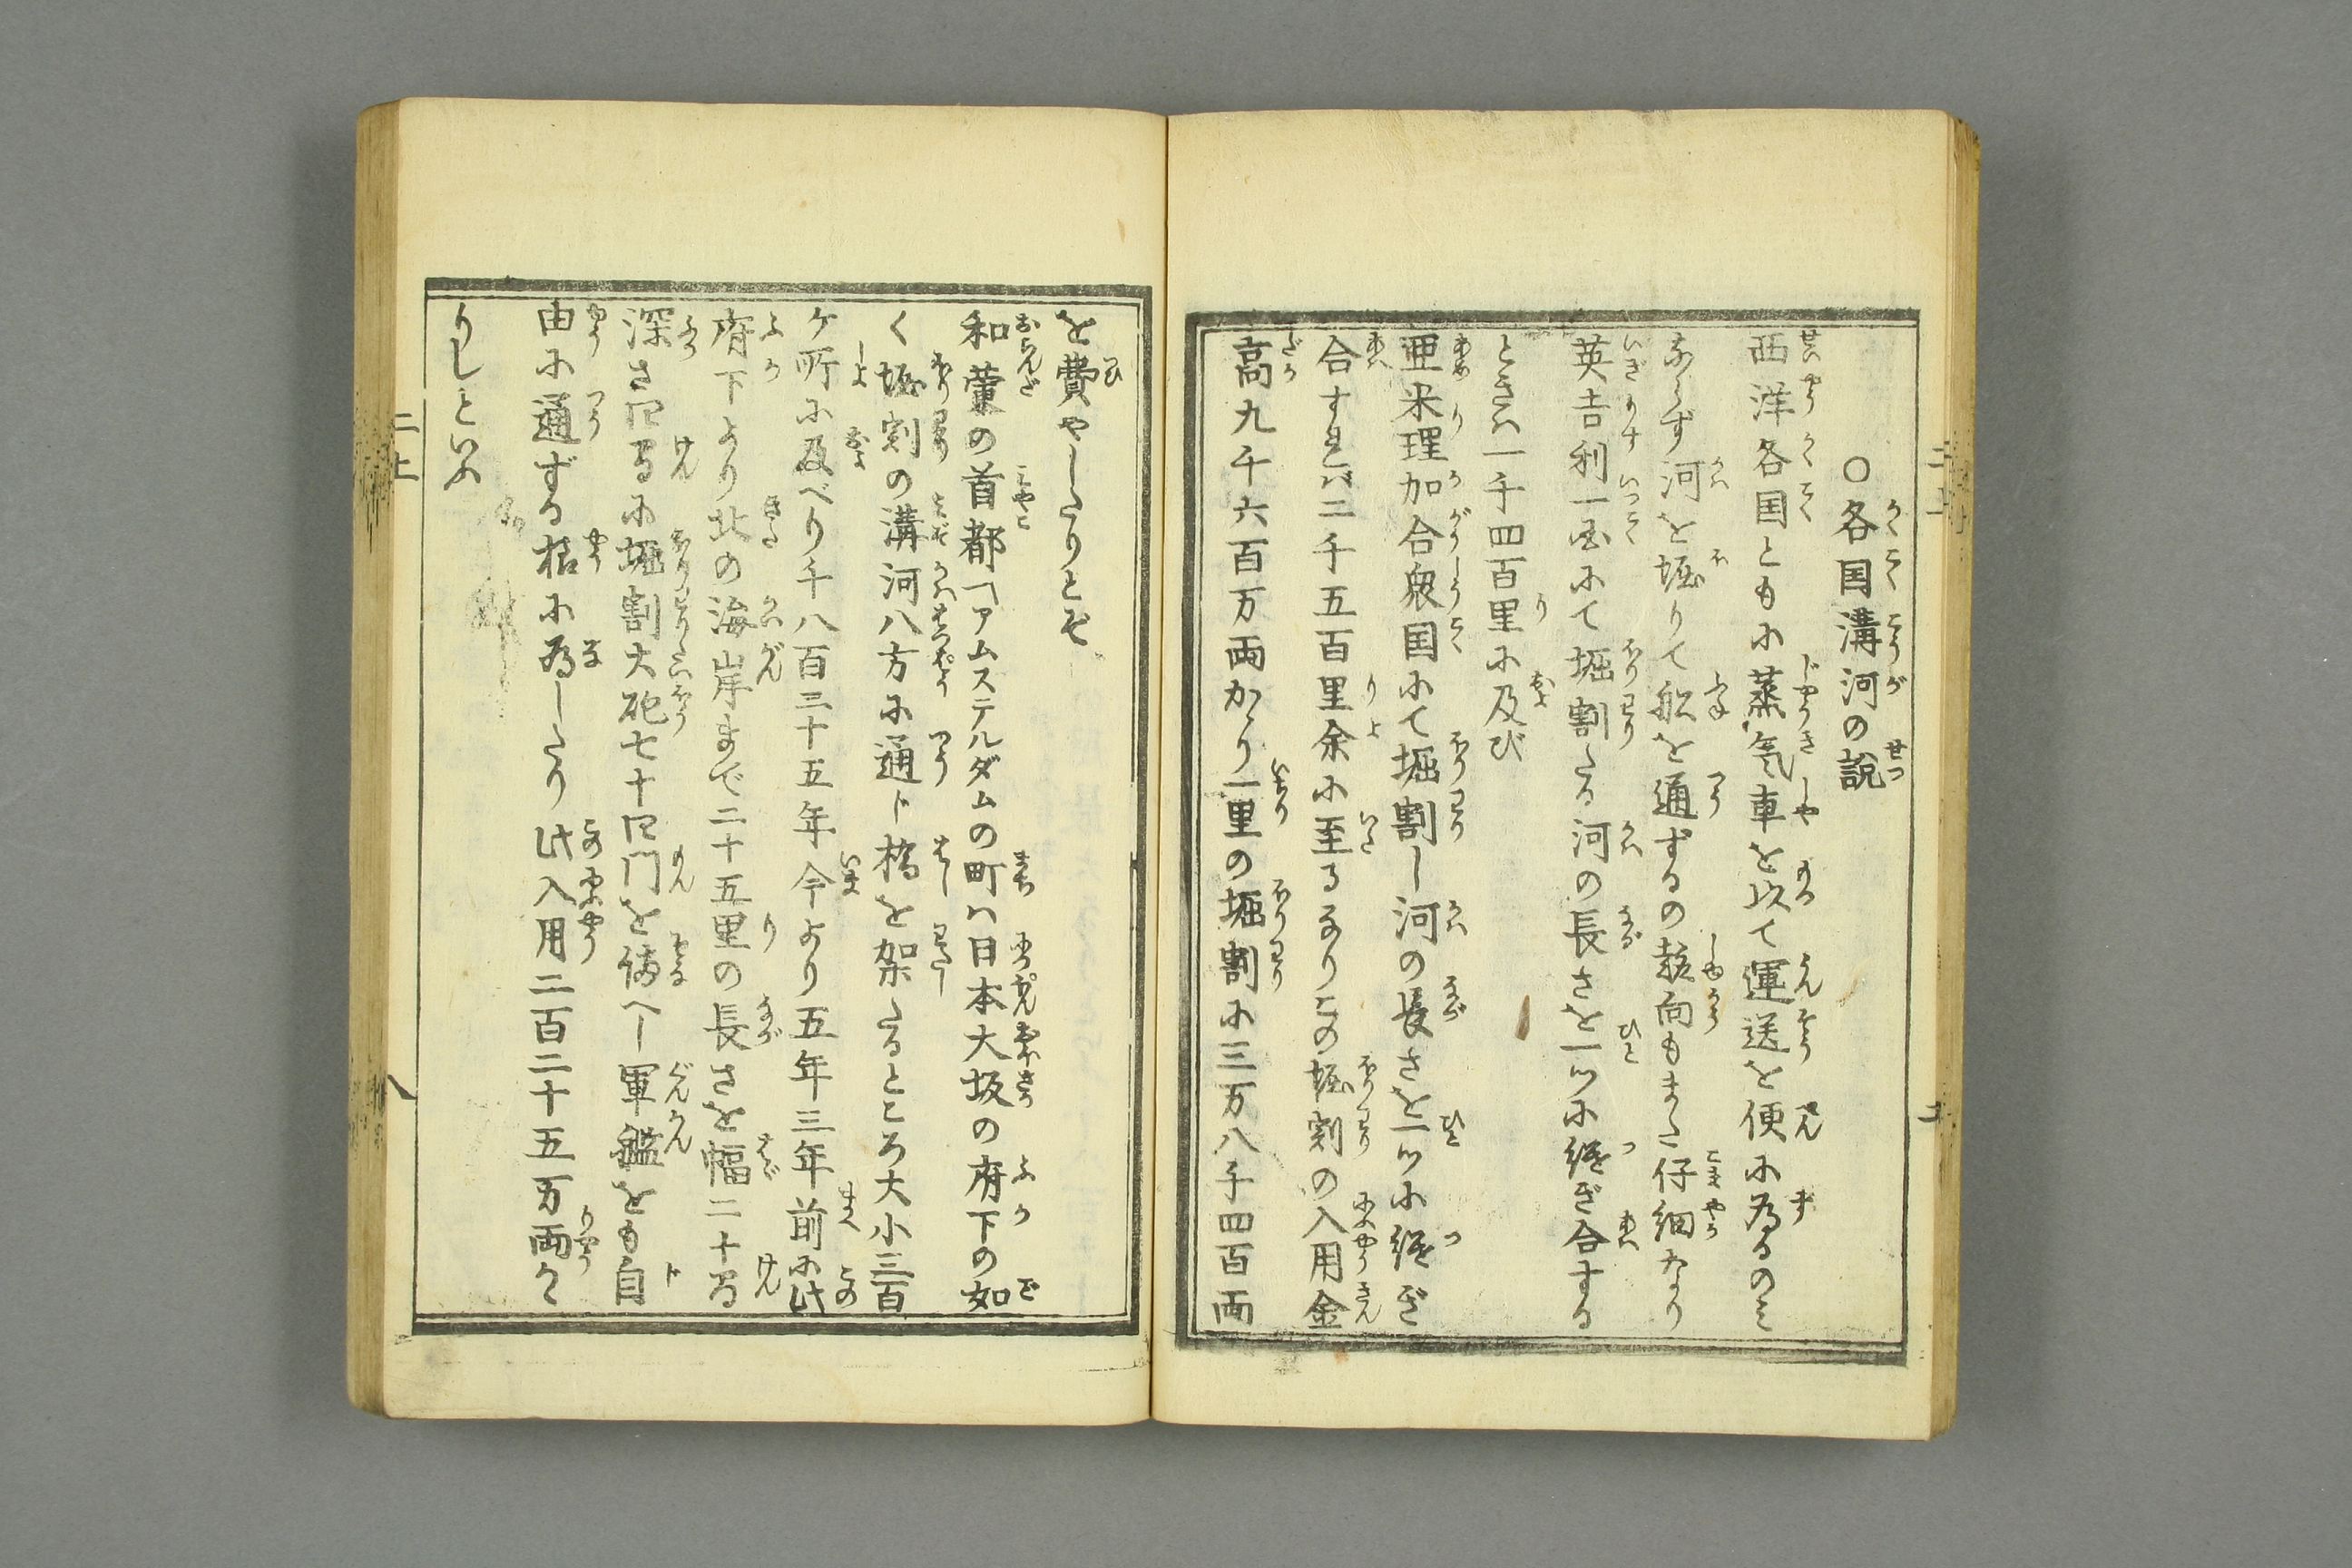 ○各国溝河の説
西洋各国とも小蒸気車を以て運送を便小為るのミ
ならず河を堀りて船を通ずるの趣向もまた仔細なり
英吉利一国小て堀割たる河の長さを一ツ小継ぎ合する
ときハ一千四百里小及び
亜米理加合衆国小て堀割し河の長さを一ツ小継ぎ
合すれバ二千五百里余小至るなりこの堀割の入用金
高九千六百万両かゝり一里の堀割小三万八千四百両
を費やしたりとぞ
和蘭の首都「アムステルダムの町ハ日本大坂の府下の如
く堀割の溝河八方小通ド橋を架たるところ大小三百
ケ所小及べり千八百三十五年今より五年三年前小此
府下より北の海岸まで二十五里の長さを幅二十間
深さ四間小堀割大砲七十四門を備へし軍艦をも自
由小通ずる様小為したり此入用二百二十五万両かゝ
りしといふ
二上
八